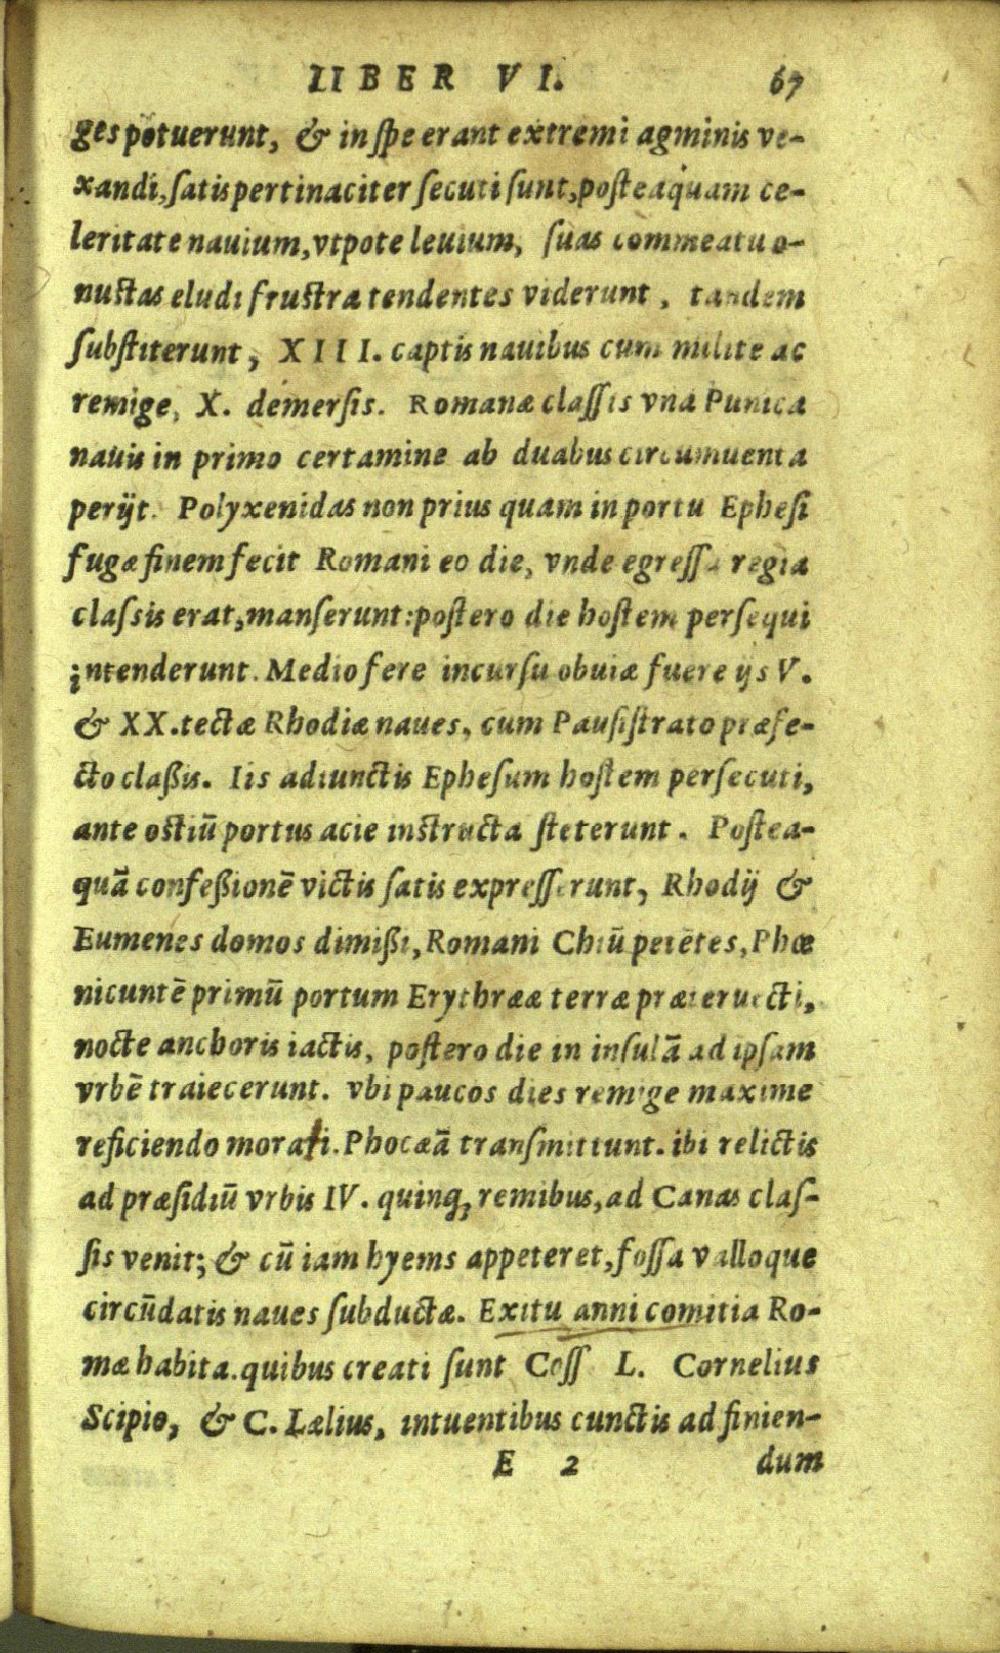 LIBER VI. 67
ges potuerunt, & in spe erant extremi agminis ve-
xandi, satis pertinaciter secuti sunt, posteaquam ce-
leritate nauium, vtpote leuium, suas commeatu o-
nustas eludi frustra tendentes viderunt, tandem
substiterunt, XIII. captis nauibus cum milite ac
remige, X. demersis. Romanæ classis vna Punica
nauis in primo certamine ab duabus circumuenta
perijt. Polyxenidas non prius quam in portu Ephesi
fugæ finem fecit Romani eo die, vnde egressa regia
classis erat, manserunt: postero die hostem persequi
intenderunt. Medio fere incursu obuiæ fuere ijs V.
& XX. tectæ Rhodiæ naues, cum Pausistrato præfe-
cto claßis. Iis adiunctis Ephesum hostem persecuti,
ante ostiū portus acie instructa steterunt. Postea-
quā confeßionē victis satis expresserunt, Rhodij &
Eumenes domos dimißi, Romani Chiū petētes, Phœ
nicuntē primū portum Erythrææ terræ præteruecti,
nocte anchoris iactis, postero die in insulā ad ipsam
vrbē traiecerunt. vbi paucos dies remige maxime
reficiendo morati. Phocæā transmittunt. ibi relictis
ad præsidiū vrbis IV. quinq; remibus, ad Canas clas-
sis venit; & cū iam hyems appeteret, fossa valloque
circūdatis naues subductæ. Exitu anni comitia Ro-
mæ habita. quibus creati sunt Coss L. Cornelius
Scipio, & C. Lælius, intuentibus cunctis ad finien-
E 2 dum